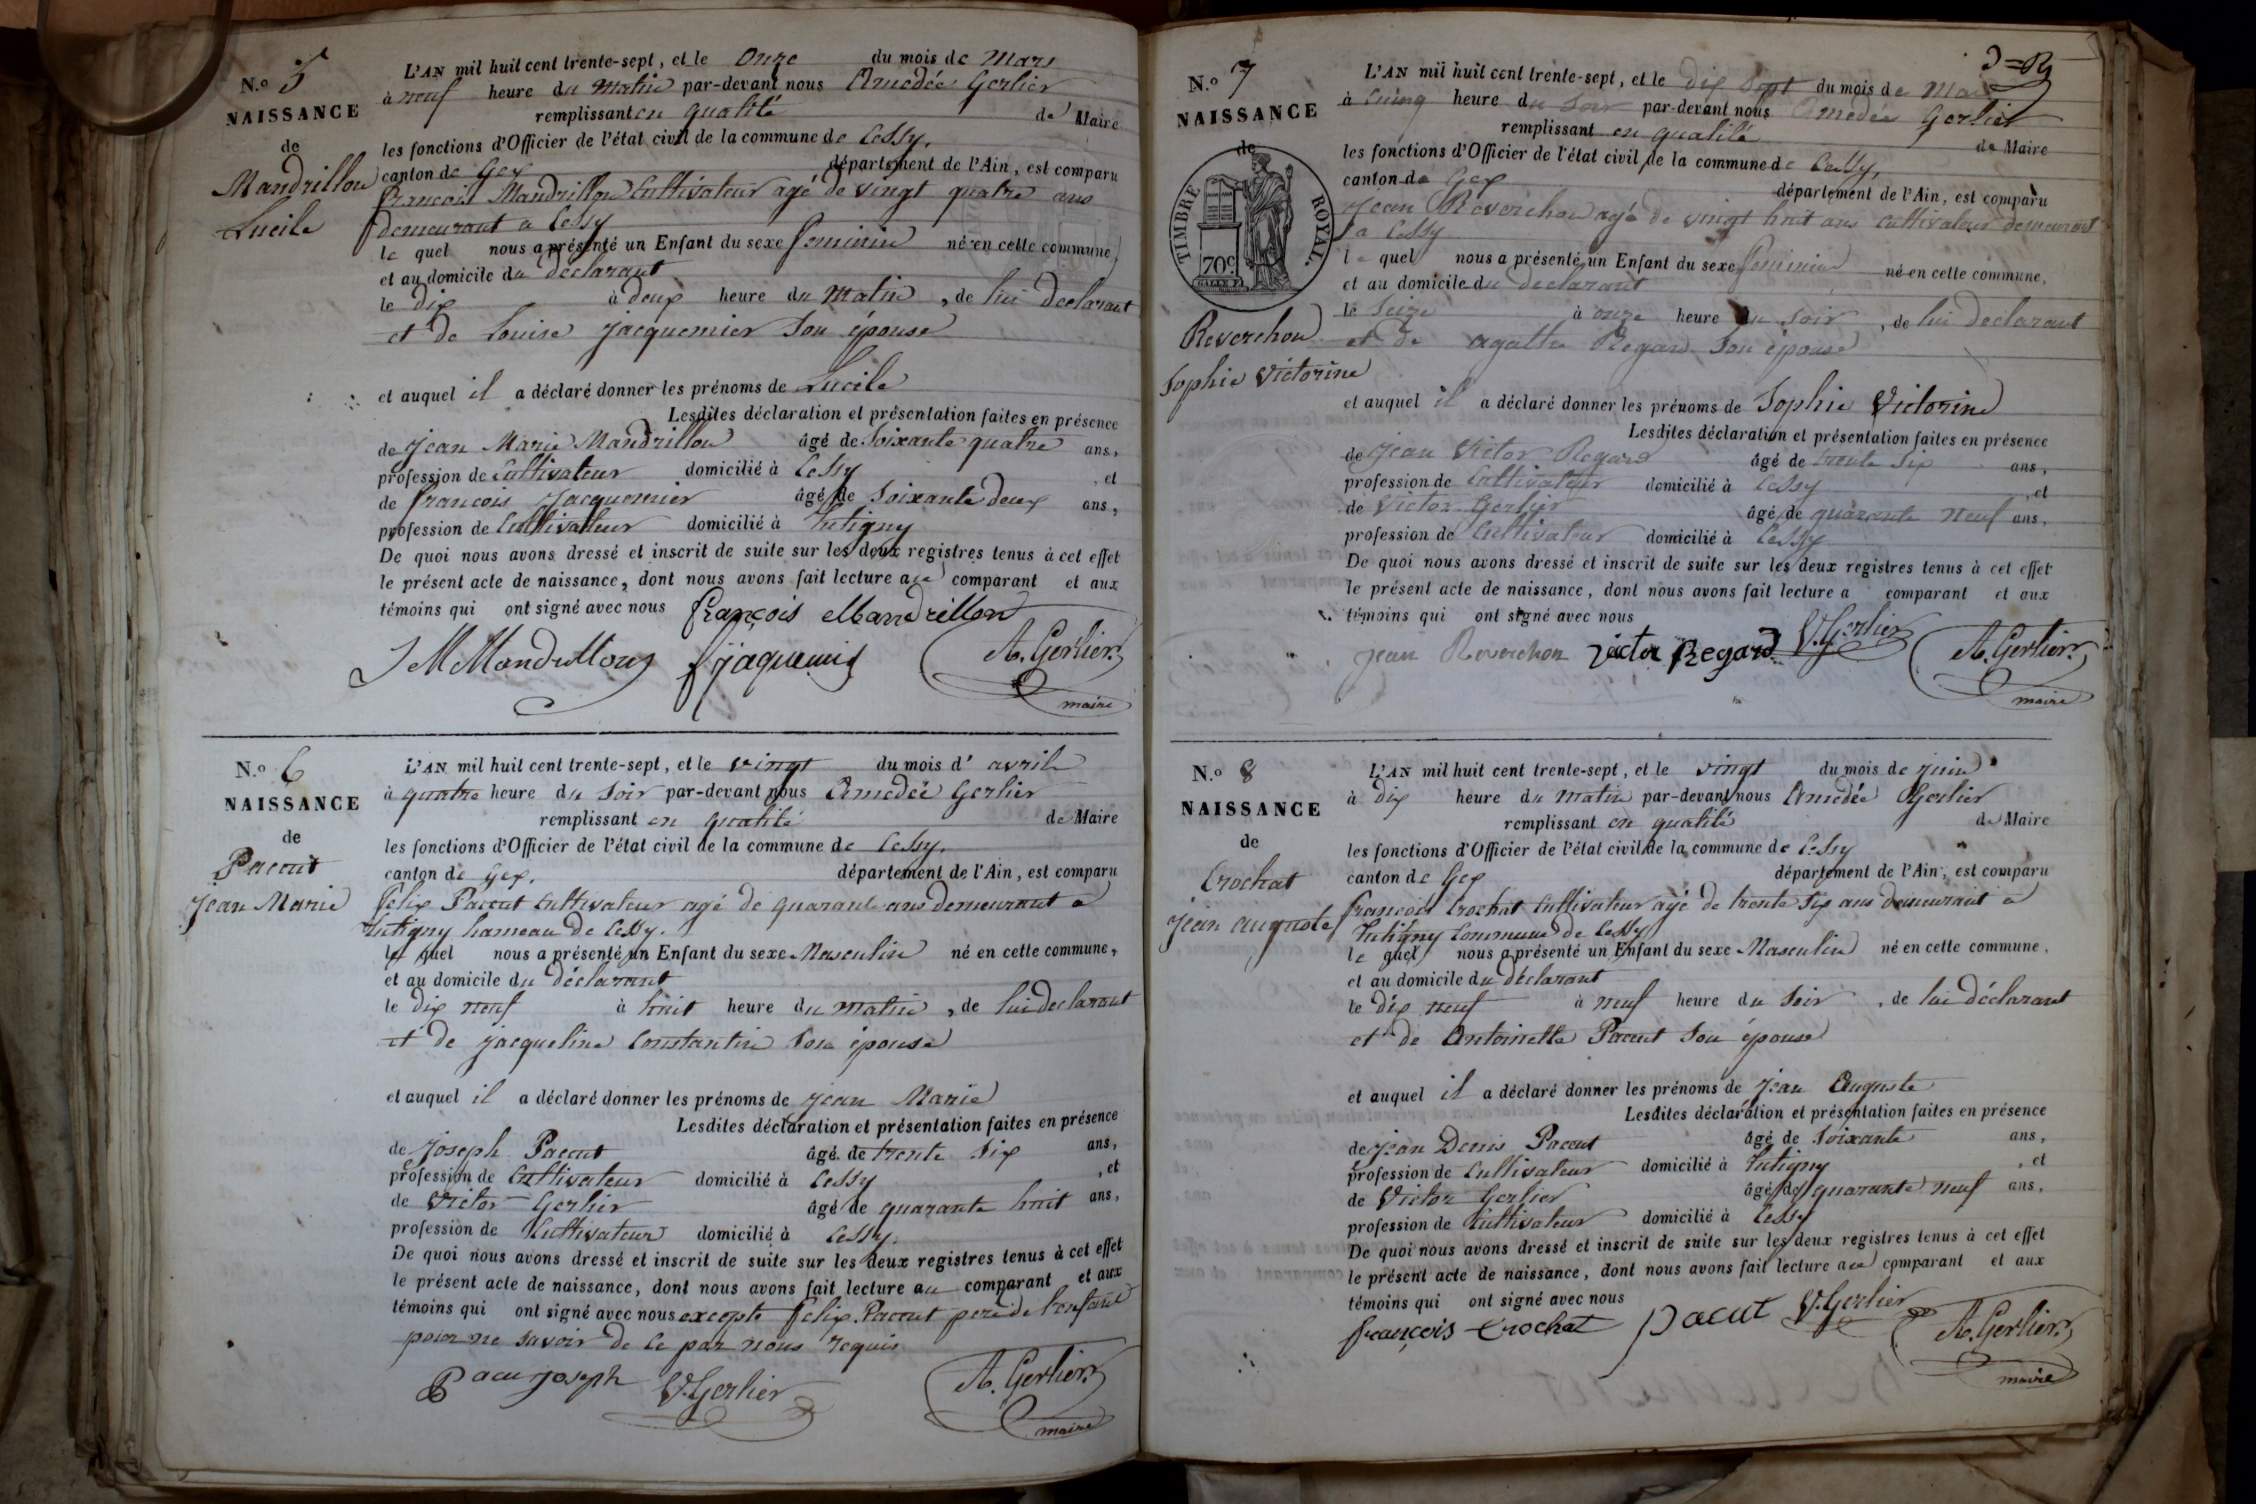 N.o 5
NAISSANCE
de
Mandrillon
Lucile
L'AN mil huit cent trente-sept, et le onze du mois de Mars
à neuf heure du matin par-devant nous Amedée Gerlier
remplissant en qualité de Maire
les fonctions d'Officier de l'état civil de la commune de Cessy,
canton de Gex département de l'Ain, est comparu
françois Mandrillon Cultivateur agé de vingt quatre ans
demeurant a Cessy
le quel nous a présenté un Enfant du sexe feminin né en cette commune,
et au domicile du déclarant
le dix à deux heure du matin, de lui declarant
et de Louise jacquemier son épouse
et auquel il a déclaré donner les prénoms de Lucile
Lesdites déclaration et présentation faites en présence
de jean Marie Mandrillon âgé de soixante quatre ans,
profession de Cultivateur domicilié à Cessy, et
de françois jacquemier âgé de soixante deux ans,
profession de Cultivateur domicilié à Tutigny
De quoi nous avons dressé et inscrit de suite sur les deux registres tenus à cet effet
le présent acte de naissance, dont nous avons fait lecture au comparant et aux
témoins qui ont signé avec nous françois Mandrillon
J M Mandrillon f jaquemier A. Gerlier
maire
N.o 6
NAISSANCE
de
Pacout
jean Marie
L'AN mil huit cent trente-sept, et le vingt du mois d' avril
à quatre heure du soir par-devant nous Amedée Gerlier
remplissant en qualité de Maire
les fonctions d'Officier de l'état civil de la commune de Cessy,
canton de Gex, département de l'Ain, est comparu
felix Pacout Cultivateur agé de quarante ans demeurant a
Tutigny hameau de Cessy.
le quel nous a présenté un Enfant du sexe Masculin né en cette commune,
et au domicile du déclarant
le dix neuf à huit heure du matin, de lui declarant
et de jacqueline Constantin son épouse
et auquel il a déclaré donner les prénoms de jean Marie
Lesdites déclaration et présentation faites en présence
de joseph Pacout âgé de trente six ans,
profession de Cultivateur domicilié à Cessy, et
de Victor Gerlier âgé de quarante huit ans,
profession de Cultivateur domicilié à Cessy.
De quoi nous avons dressé et inscrit de suite sur les deux registres tenus à cet effet
le présent acte de naissance, dont nous avons fait lecture au comparant et aux
témoins qui ont signé avec nous excepte felix Pacout pere de l'enfant
pour ne savoir de ce par nous requis
Pacu joseph V. Gerlier A. Gerlier
maire
N.o 7
NAISSANCE
de
TIMBRE ROYAL.
70c
Reverchon
Sophie Victorine
L'AN mil huit cent trente-sept, et le dix sept du mois de Mai
à cinq heure du soir par-devant nous Amedée Gerlier
remplissant en qualité de Maire
les fonctions d'Officier de l'état civil de la commune de Cessy,
canton de Gex département de l'Ain, est comparu
jean Reverchon agé de vingt huit ans cultivateur demeurant
a Cessy
le quel nous a présenté un Enfant du sexe feminin né en cette commune,
et au domicile du declarant
le seize à onze heure du soir, de lui declarant
et de agathe Regard son épouse
et auquel il a déclaré donner les prénoms de Sophie Victorine
Lesdites déclaration et présentation faites en présence
de jean Victor Regard âgé de trente six ans,
profession de Cultivateur domicilié à Cessy, et
de Victor Gerlier âgé de quarante neuf ans,
profession de Cultivateur domicilié à Cessy
De quoi nous avons dressé et inscrit de suite sur les deux registres tenus à cet effet
le présent acte de naissance, dont nous avons fait lecture a comparant et aux
témoins qui ont signé avec nous
jean Reverchon victor Regard V. Gerlier A. Gerlier
maire
N.o 8
NAISSANCE
de
Crochat
jean auguste
L'AN mil huit cent trente-sept, et le vingt du mois de juin
à dix heure du matin par-devant nous Amedée Gerlier
remplissant en qualité de Maire
les fonctions d'Officier de l'état civil de la commune de Cessy
canton de Gex département de l'Ain, est comparu
françois Crochat Cultivateur agé de trente six ans demeurant a
Tutigny Commune de Cessy
le quel nous a présenté un Enfant du sexe Masculin né en cette commune,
et au domicile du déclarant
le dix neuf à neuf heure du soir, de lui déclarant
et de Antoinette Pacout son épouse
et auquel il a déclaré donner les prénoms de jean Auguste
Lesdites déclaration et présentation faites en présence
de jean Denis Pacout âgé de soixante ans,
profession de Cultivateur domicilié à Tutigny, et
de Victor Gerlier âgé de quarante neuf ans,
profession de Cultivateur domicilié à Cessy
De quoi nous avons dressé et inscrit de suite sur les deux registres tenus à cet effet
le présent acte de naissance, dont nous avons fait lecture au comparant et aux
témoins qui ont signé avec nous
françois Crochat pacut V. Gerlier A. Gerlier
maire